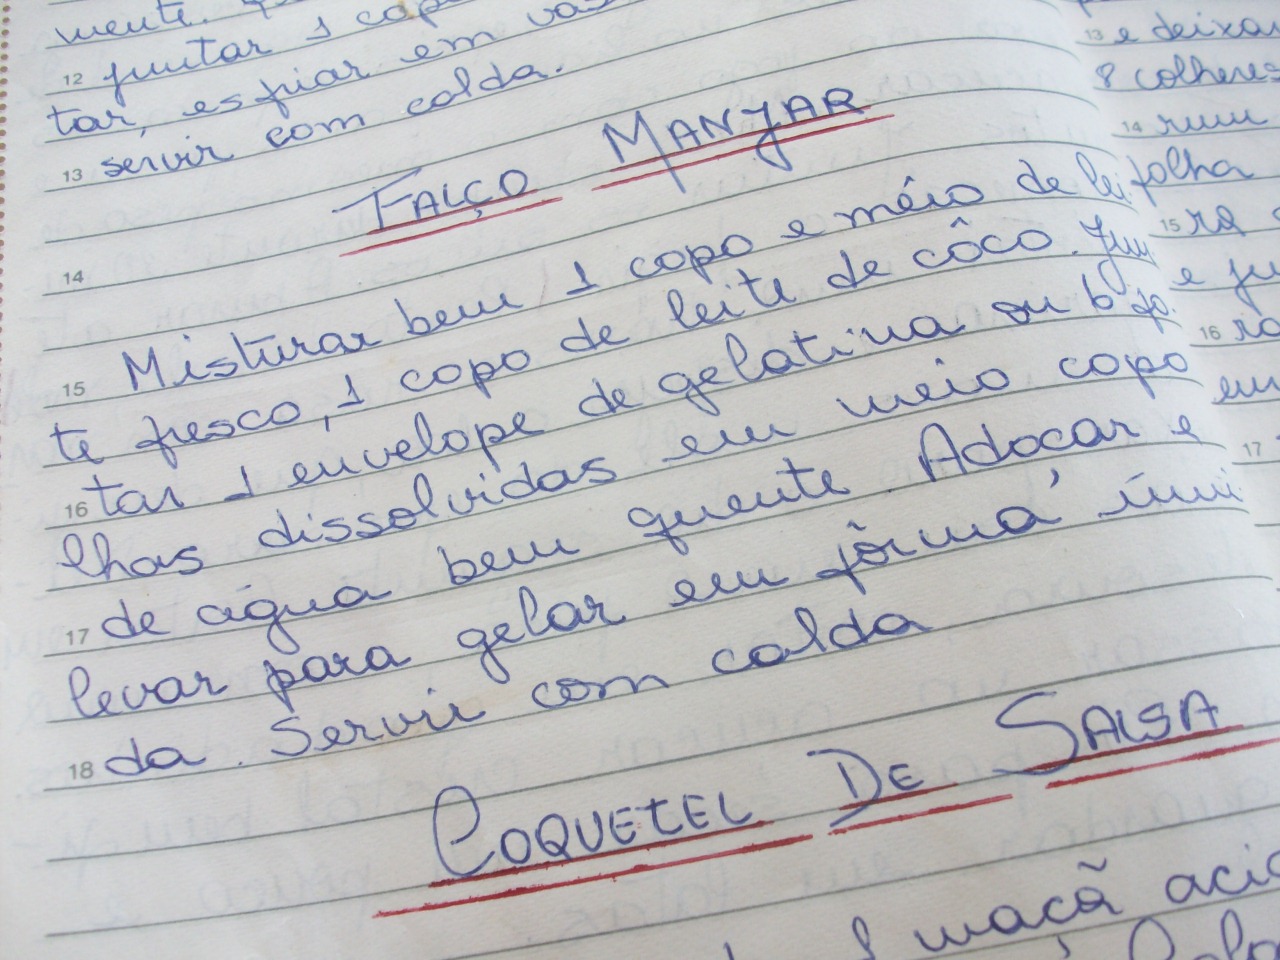 mente.
12 juntar 1 copo
tar, esfriar em vas
13 servir com calda.
FALÇO MANJAR
14
Misturar bem 1 copo e meio de lei-
15
te fresco, 1 copo de leite de côco. Jun-
16 tar 1 envelope de gelatina ou 6 fo-
lhas dissolvidas em meio copo
17 de água bem quente. Adoçar e
levar para gelar em fôrma úmi-
18 da. Servir com calda
COQUETEL DE SALSA
1 maçã acid
13 e deixar
8 colheres
14 rum
folha
15 ra
e ju
16 ra
em
17